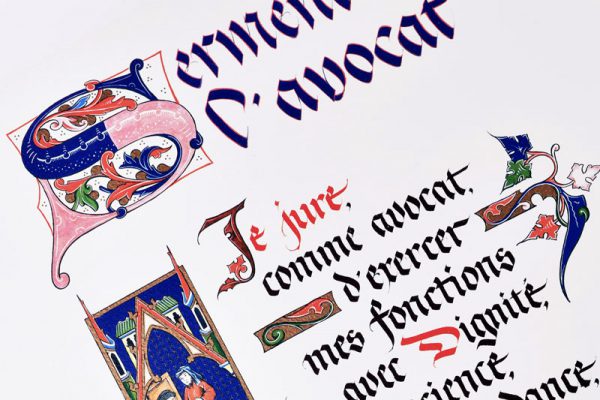 Serment
d'avocat
Je jure,
comme avocat,
d'exercer
mes fonctions
avec Dignité,
science,
dance,